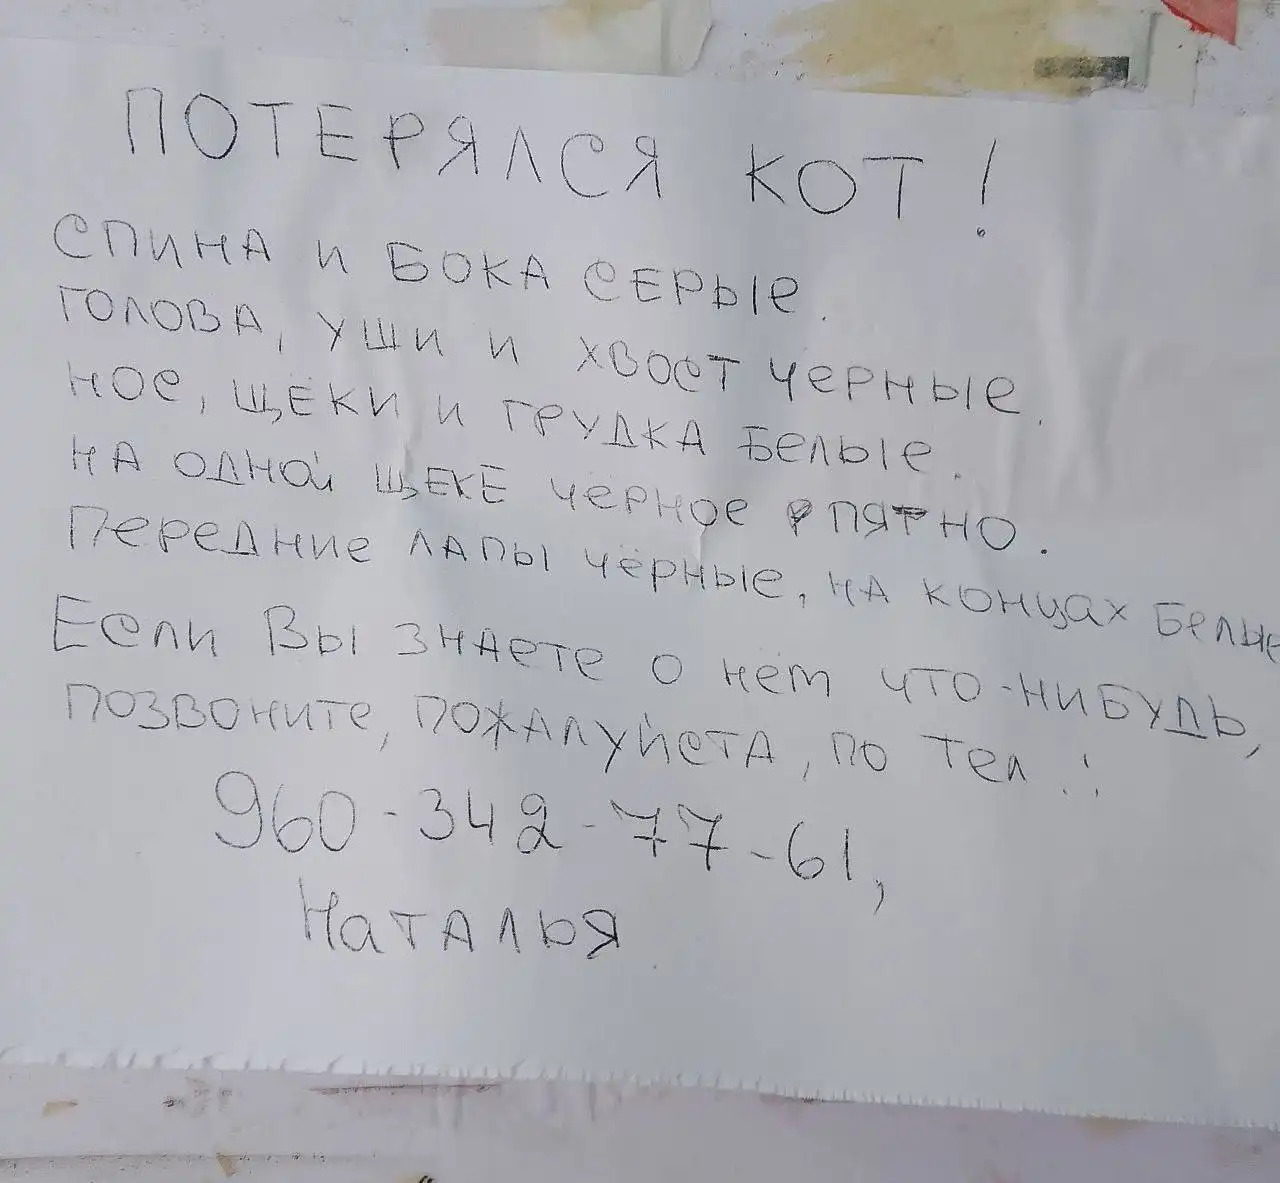 ПОТЕРЯЛСЯ КОТ!
СПИНА И БОКА СЕРЫЕ.
ГОЛОВА, УШИ И ХВОСТ ЧЕРНЫЕ.
НОС, ЩЁКИ И ГРУДКА БЕЛЫЕ.
НА ОДНОЙ ЩЕКЕ ЧЁРНОЕ ПЯТНО.
ПЕРЕДНИЕ ЛАПЫ ЧЁРНЫЕ, НА КОНЦАХ БЕЛЫЕ
Если Вы знаете о нём что-нибудь,
позвоните, пожалуйста, по тел.:
960-342-77-61,
Наталья